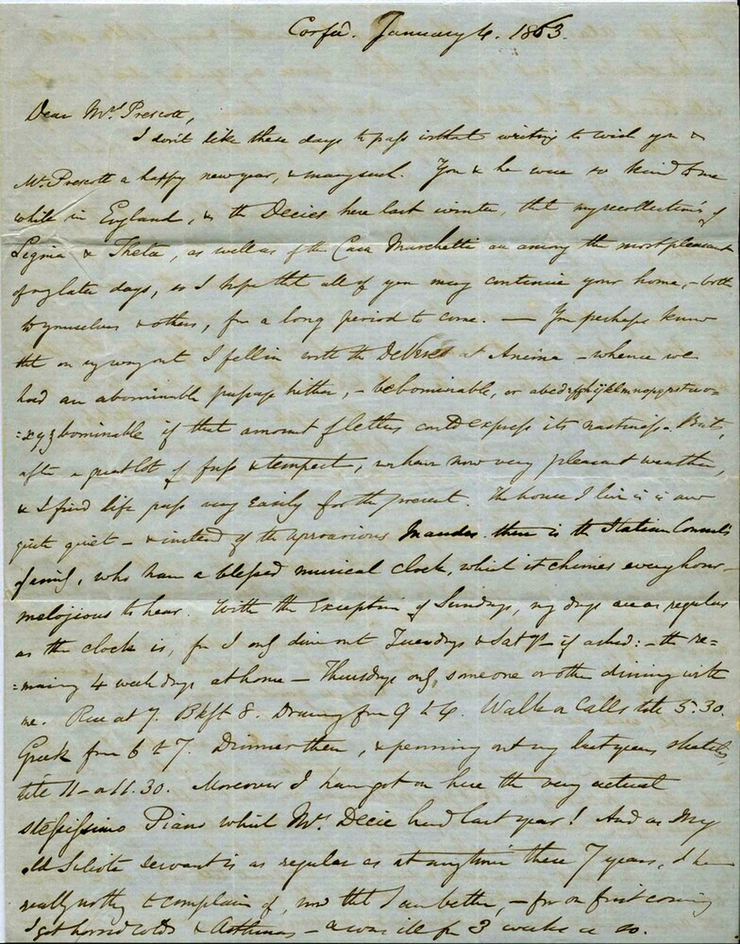 Corfû. January 4. 1863.
Dear Mrs. Prescott,
I don't like these days to pass without writing to wish you &
Mr. Prescott a happy new year, & many such. You & he were so kind to me
while in England, & the Decies here last winter, that my recollections of
& Theta, as well as of the Casa Marchetti are among the most pleasant
of my later days, & I hope that all of you may continue your home, - both
to yourselves & others, for a long period to come. — You perhaps know
that on my way out I fell in with the DeVeres at Ancona - whence we
had an abominable passage hither, - bebominable, or abcdefghijklmnopqrstuvw=
=xyzbominable if that amount of letters could express its nastiness. But,
after a great lot of fuss & tempest, we have now very pleasant weather,
& I find life pass very easily for the present. The house I live in is now
quite quiet - & instead of the uproarious there is the Italian Consul's
family, who have a blessed musical clock, which it chimes every hour -
melojious to hear. With the exception of Sundays, my days are as regular
as the clock is, for I only dine out Tuesdays & Satys - if asked: - the re=
=maining 4 week days at home - Thursdays only, some one or other dining with
me. Rise at 7. Bkft 8. Drawing from 9 to 4. Walk or Calls till 5.30.
Greek from 6 to 7. Dinner then, & penning out my last years sketches,
till 11 - or 11.30. Moreover I have got on hire the very actual
stessissimo Piano which Mrs. Decie had last year! And as my
old Suliote servant is as regular as at any time these 7 years, I have
really nothg to complain of, now that I am better, - for on first coming
I got horrid colds & Asthma - & was ill for 3 weeks or so.